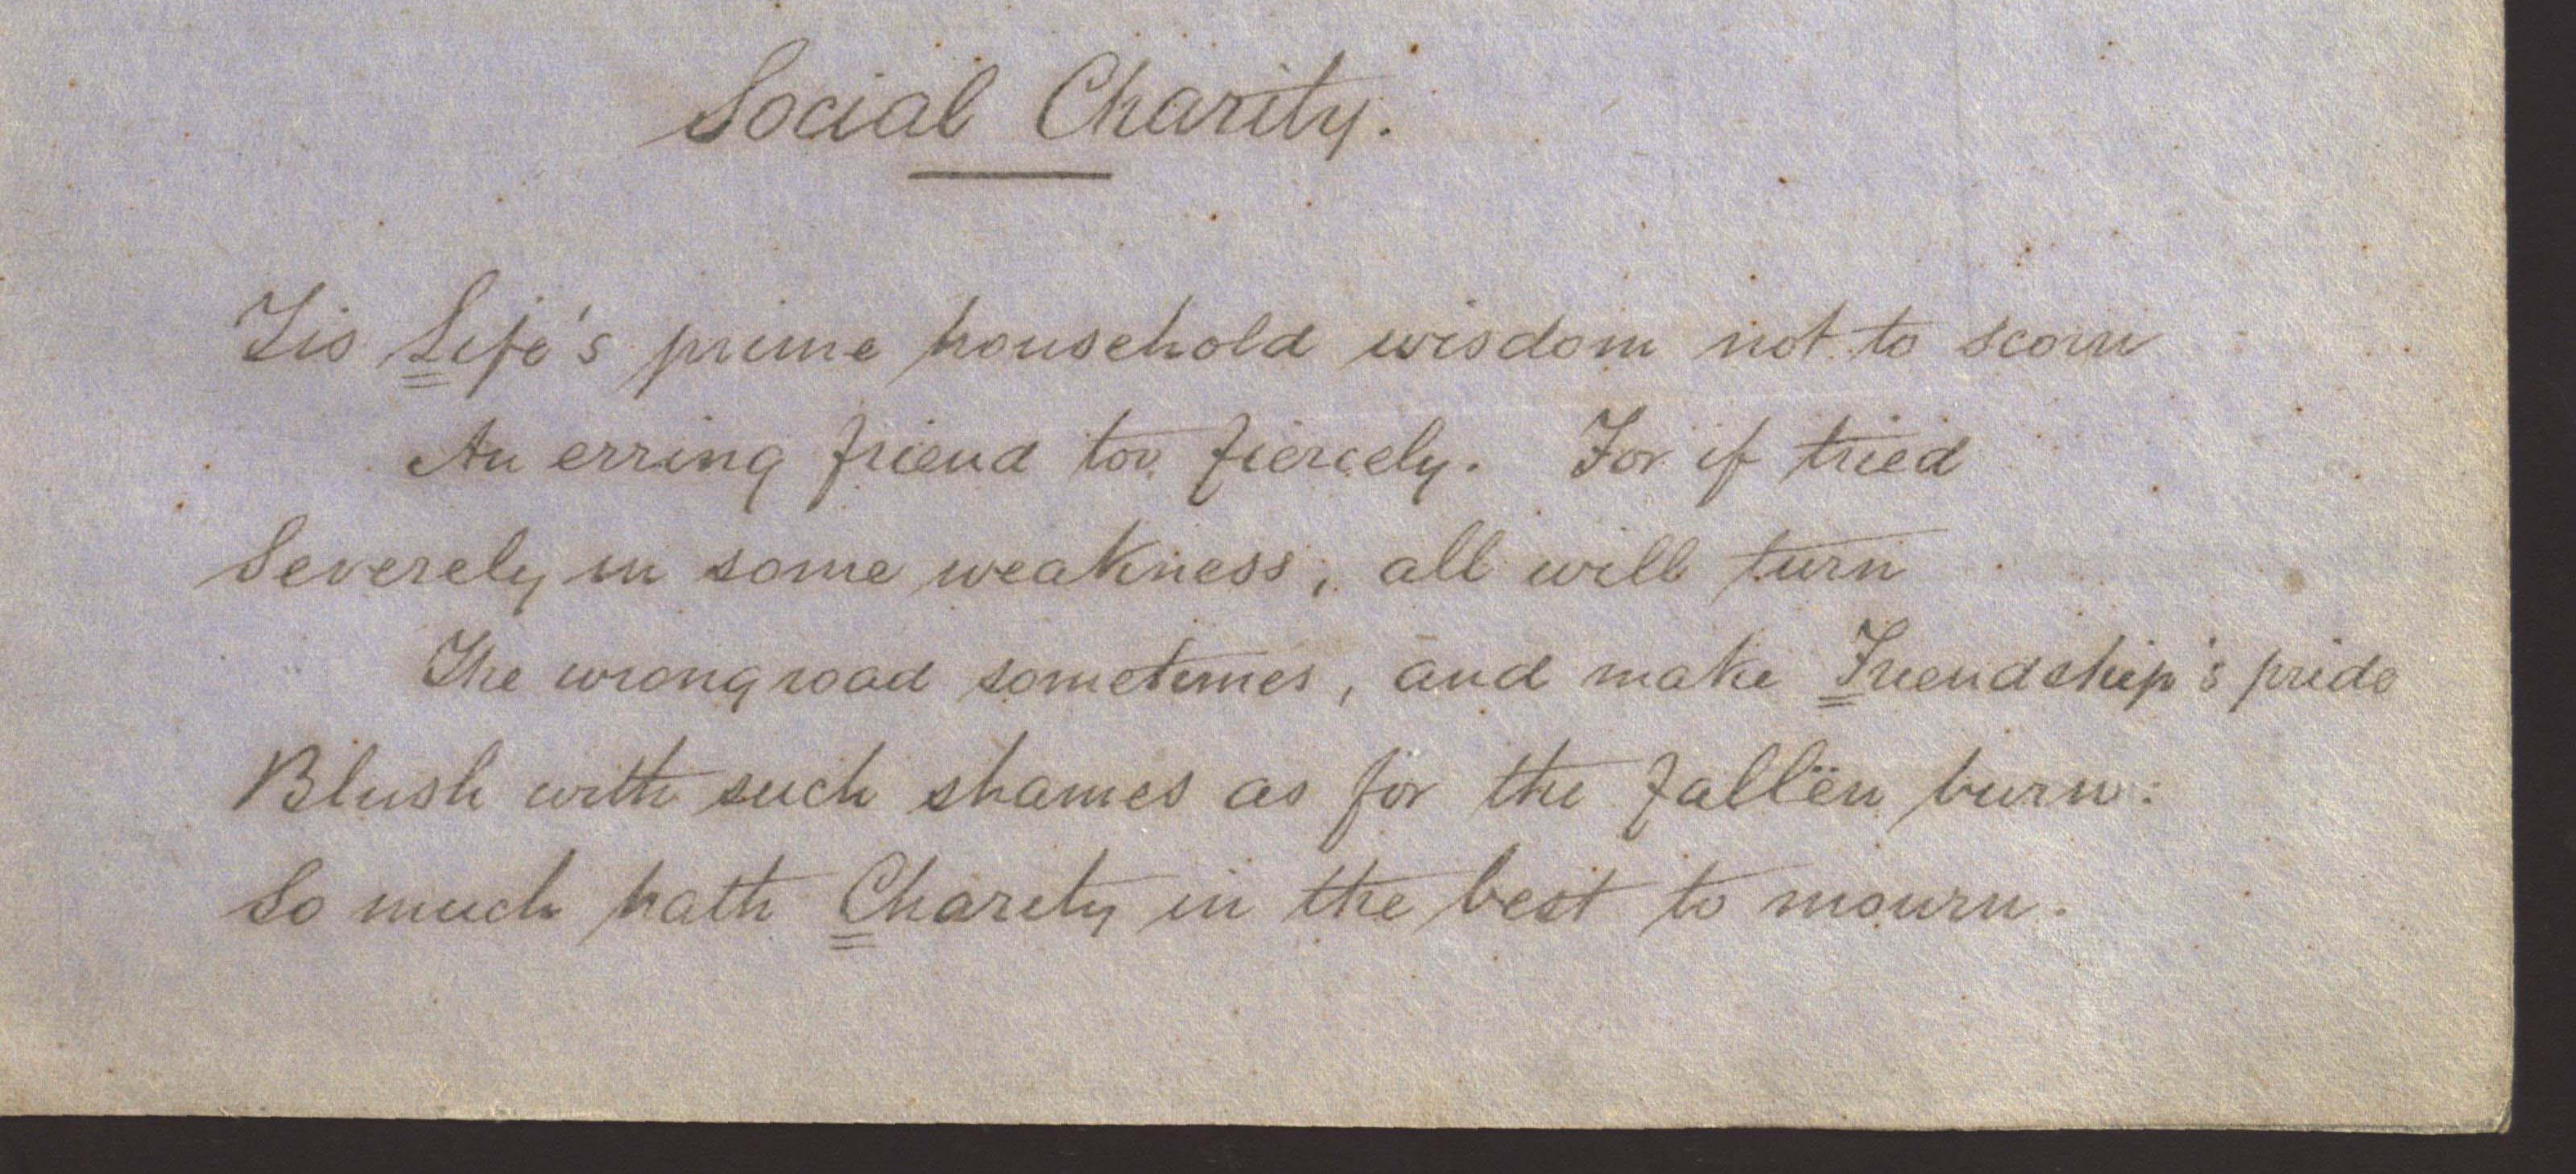 Social Charity.
Tis Life's prime household wisdom not to scorn
An erring friend too fiercely. For if tried
Severely in some weakness, all will turn
The wrong road sometimes, and make Friendship's pride
Blush with such shames as for the fallen burn:
So much hath Charity in the best to mourn.